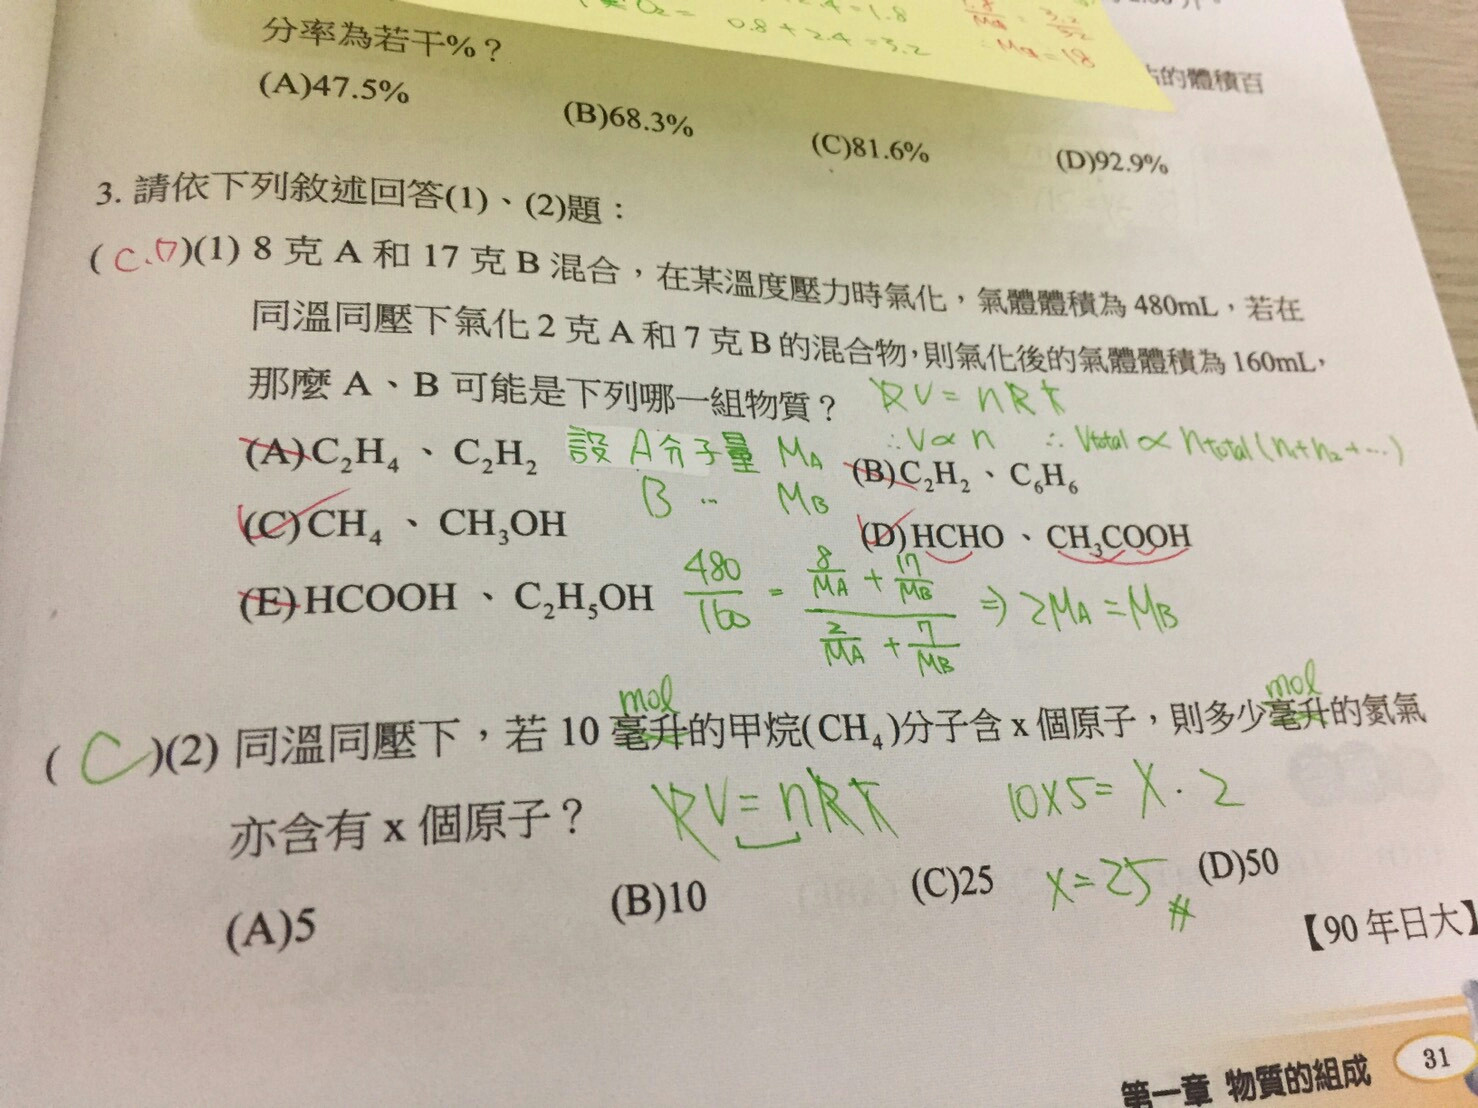 2.4=1.8
O₂= 0.8+2.4=3.2
3.2
32
∴ = 18
分率為若干%？
的體積百
(A)47.5% (B)68.3% (C)81.6% (D)92.9%
3. 請依下列敘述回答(1)、(2)題：
( C.D )(1) 8 克 A 和 17 克 B 混合，在某溫度壓力時氣化，氣體體積為 480mL，若在
同溫同壓下氣化 2 克 A 和 7 克 B 的混合物，則氣化後的氣體體積為 160mL，
那麼 A、B 可能是下列哪一組物質？ PV = nRT
∴ V ∝ n ∴ Vtotal ∝ ntotal (n₁+n₂+…)
(A)C₂H₄、C₂H₂ 設 A分子量 MA (B)C₂H₂、C₆H₆
B .. MB
(C)CH₄、CH₃OH (D)HCHO、CH₃COOH
(E)HCOOH、C₂H₅OH 480/160 = (8/MA + 17/MB)/(2/MA + 7/MB) ⇒ 2MA = MB
mol mol
( C )(2) 同溫同壓下，若 10 毫升的甲烷(CH₄)分子含 x 個原子，則多少毫升的氮氣
亦含有 x 個原子？ PV = nRT 10×5 = X·2
(A)5 (B)10 (C)25 X=25 # (D)50
【90 年日大】
第一章 物質的組成 31